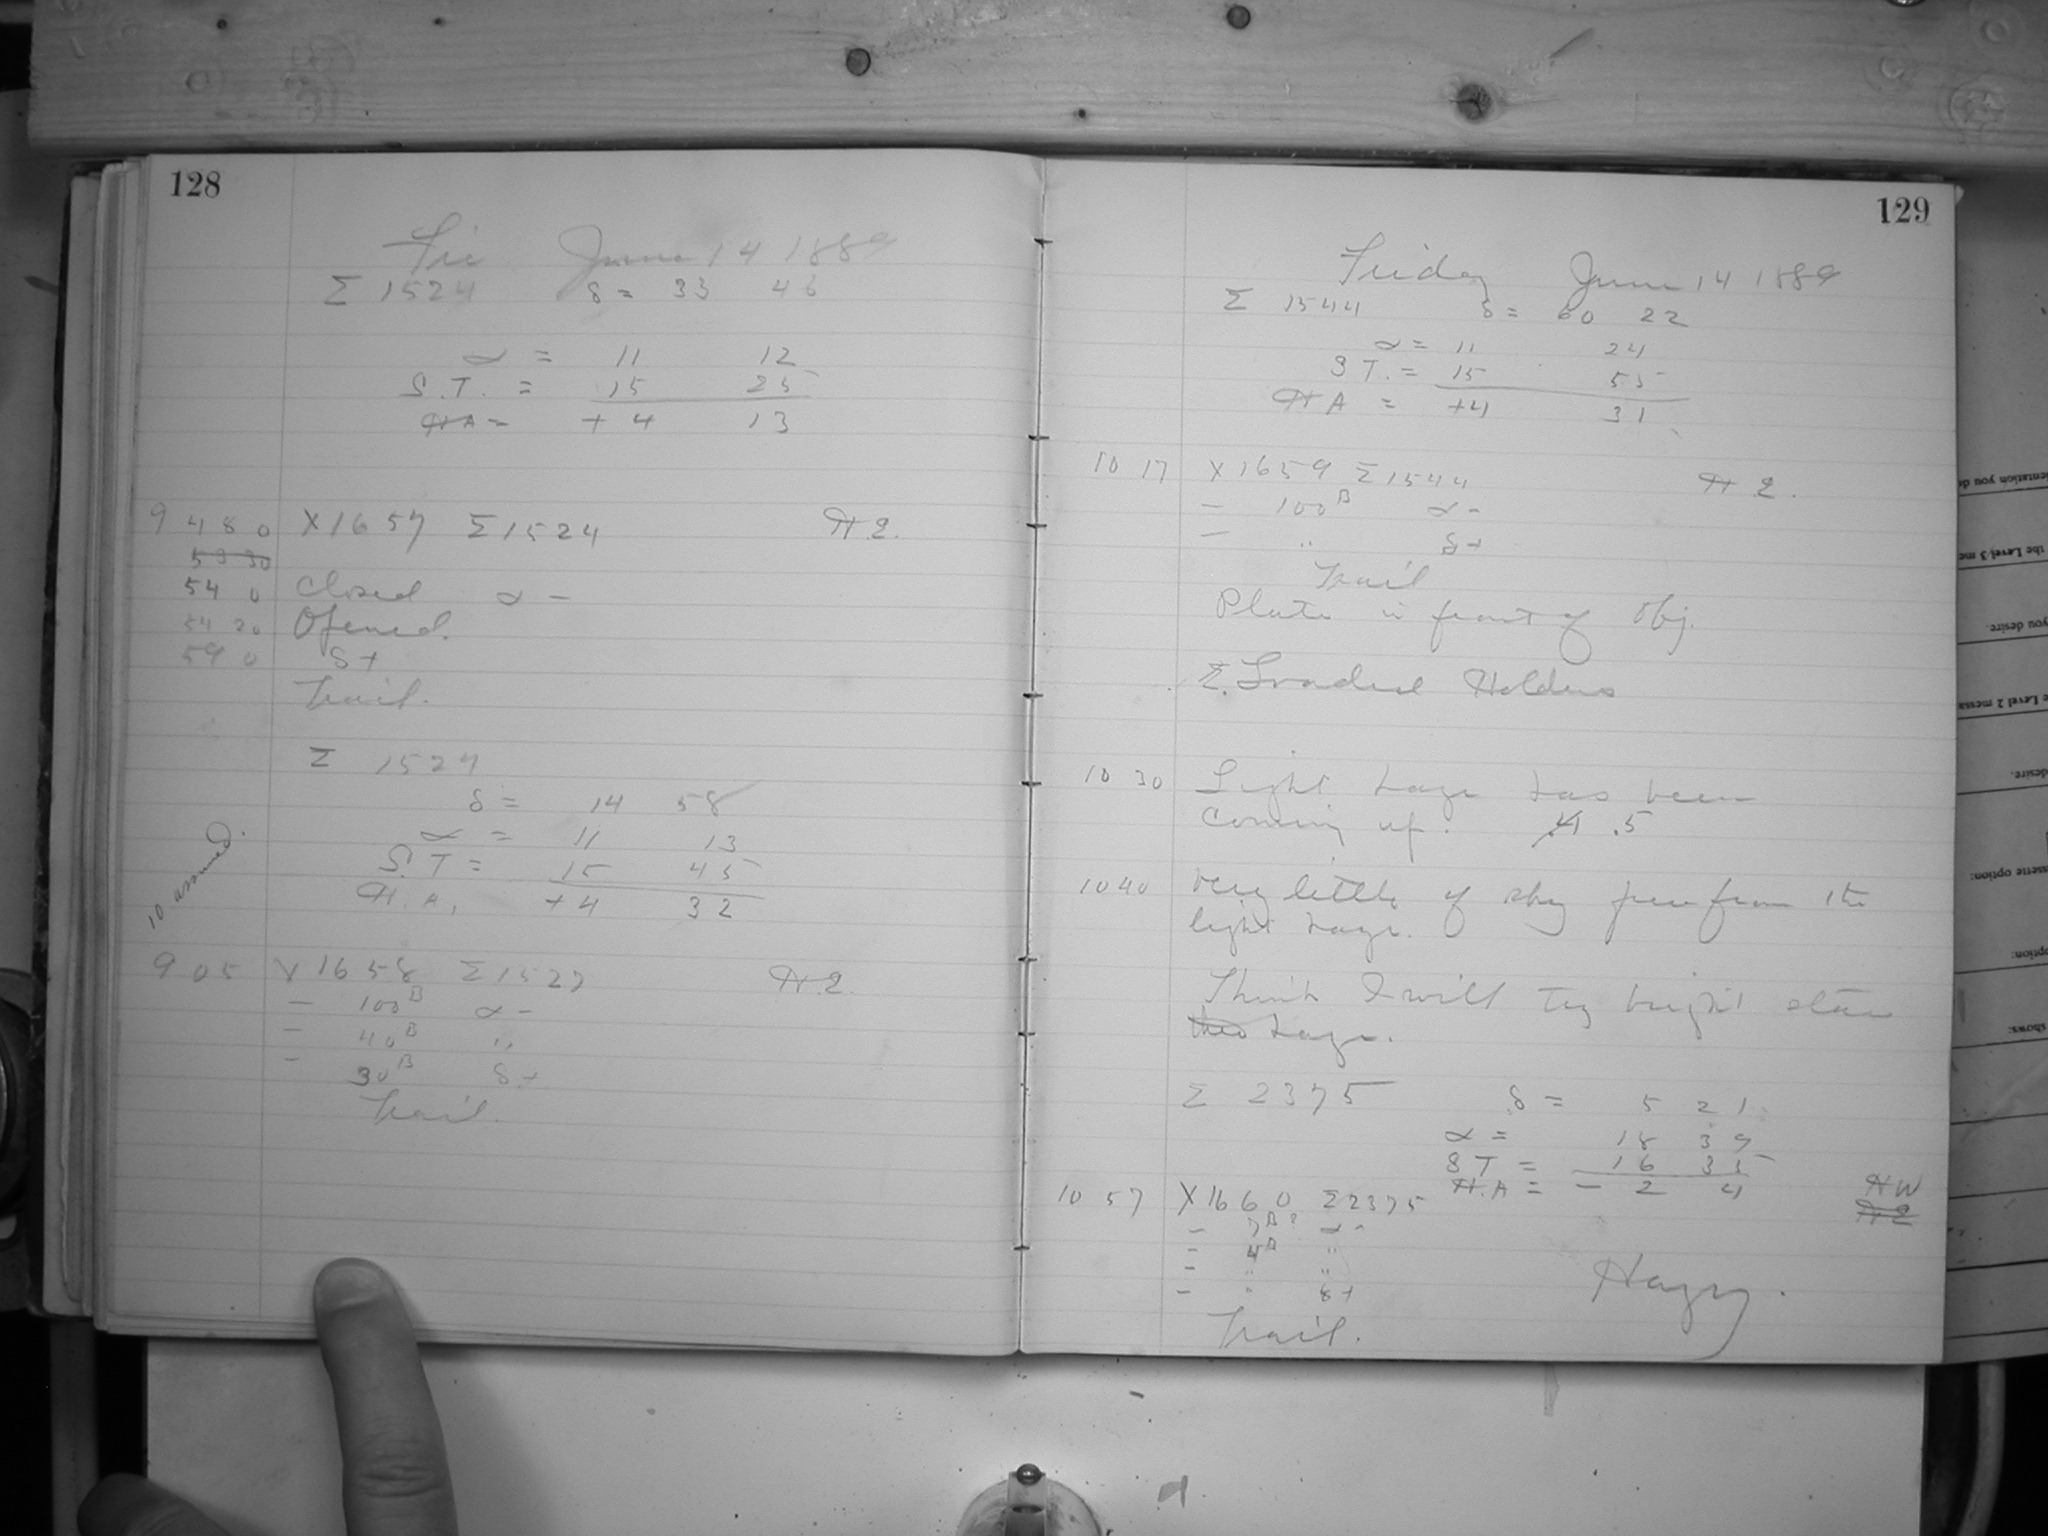 128
Fri June 14 1889
Σ 1524 δ = 33 46
α = 11 12
S.T. = 15 25
HA = + 4 13
9 48 0 X1657 Σ1524 H.E.
53 30
54 0 Closed α -
54 20 Opened.
59 0 δ +
Trail.
Σ 1527
δ = 14 58
α = 11 13
S.T = 15 45
H.A. + 4 32
10 assumed.
9 05 X1658 Σ1527 H.E.
- 100B α -
- 40B "
- 30B δ +
Trail.
129
Friday June 14 1889
Σ 1544 δ = 60 22
α = 11 24
S T. = 15 55
H A = +4 31
10 17 X1659 Σ1544 H E.
- 100B α -
- " δ +
Trail
Plate in front of Obj.
E. Loaded Holders
10 30 Light haze has been
coming up. .5
10 40 Very little of sky free from the
light haze.
Think I will try bright stars
thro haze.
Σ 2375 δ = 5 21
α = 18 39
S T = 16 35
H.A = - 2 4
HW
H E
10 57 X1660 Σ2375
- 7B? α -
- 4B "
- " "
- " δ +
Trail.
Hazy.